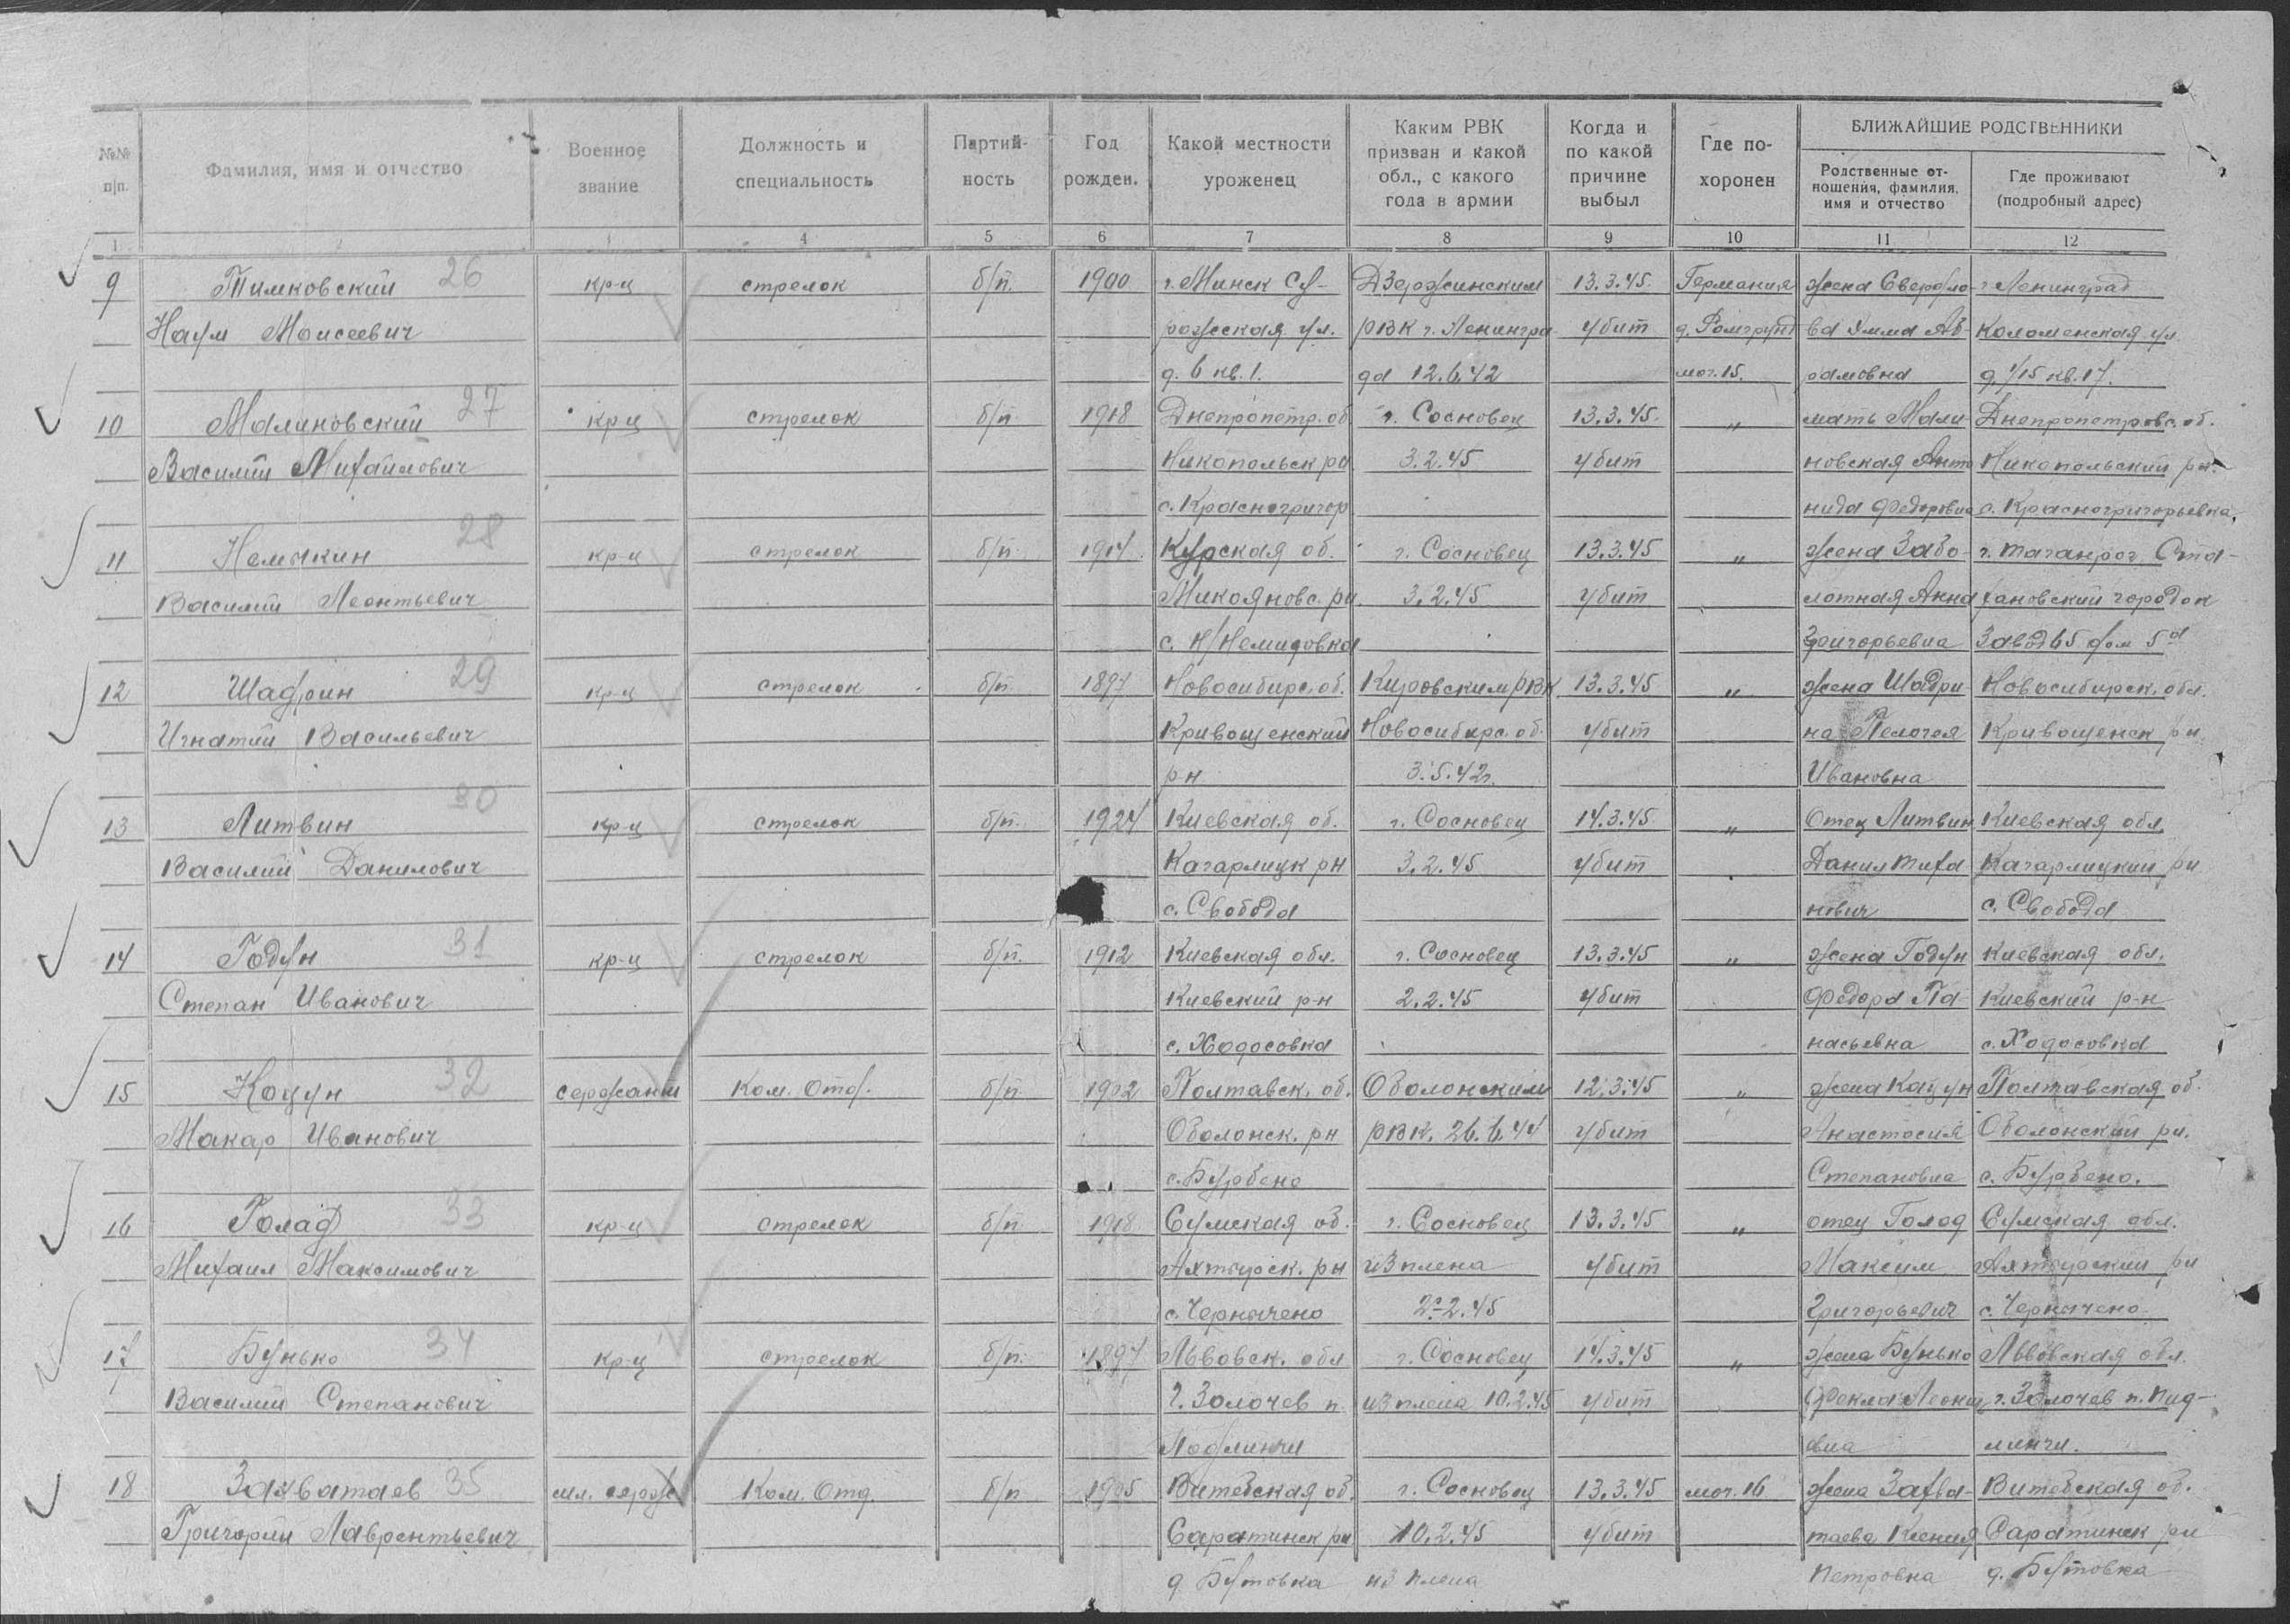 №№ п/п. | Фамилия, имя и отчество | Военное звание | Должность и специальность | Партий-ность | Год рожден. | Какой местности уроженец | Каким РВК призван и какой обл., с какого года в армии | Когда и по какой причине выбыл | Где по-хоронен | БЛИЖАЙШИЕ РОДСТВЕННИКИ
Родственные от-ношения, фамилия, имя и отчество | Где проживают (подробный адрес)
1 | 2 | 3 | 4 | 5 | 6 | 7 | 8 | 9 | 10 | 11 | 12
9 | Тимковский 26 | кр-ц | стрелок | б/п. | 1900 | г. Минск Су- | Дзержинским | 13.3.45. | Германия | жена Свердло- | г Ленинград
Наум Моисеевич | ражская ул. | РВК г. Ленингра- | убит | д. Ромгрунд | ва Эмма Аб- | Коломенская ул.
д. 6 кв. 1. | да 12.6.42 | мог. 15. | рамовна | д. 1/15 кв. 17.
10 | Малиновский 27 | кр-ц | стрелок | б/п | 1918 | Днепропетр. об. | г. Сосновец | 13.3.45. | „ | мать Мали- | Днепропетровс. об.
Василий Михайлович | Никопольск рн | 3.2.45 | убит | новская Анто | Никопольский рн.
с. Красногригор | нида Федоровна | с. Красногригорьевка,
11 | Немыкин 28 | кр-ц | стрелок | б/п | 1914. | Курская об. | г. Сосновец | 13.3.45 | „ | жена Забо- | г. Таганрог, Ста-
Василий Леонтьевич | Микояновс. рн. | 3.2.45 | убит | лотная Анна | хановский городок
с. Н/Немидовка | Григорьевна | Завод 65 дом 5а
12 | Шадрин 29 | кр-ц | стрелок | б/п | 1897 | Новосибирс. об. | Кировским РВК | 13.3.45 | „ | жена Шадри | Новосибирск. обл.
Игнатий Васильевич | Кривощенский | Новосибирс. об. | убит | на Пелогея | Кривощенск рн
рн | 3.5.42г. | Ивановна
13 | Литвин 30 | кр-ц | стрелок | б/п. | 1924 | Киевская об. | г. Сосновец | 14.3.45 | „ | Отец Литвин | Киевская обл.
Василий Данилович | Кагарлицк рн | 3.2.45 | убит | Данил Миха | Кагарлицкий рн
с. Свобода | нович | с. Свобода
14 | Годун 31 | кр-ц | стрелок | б/п. | 1912 | Киевская обл. | г. Сосновец | 13.3.45 | „ | жена Годун | Киевская обл.
Степан Иванович | Киевский р-н | 2.2.45 | убит | Федора Па- | Киевский р-н
с. Ходосовка | насьевна | с. Ходосовка
15 | Коцун 32 | сержант | Ком. Отд. | б/п | 1902 | Полтавск. об. | Оболонским | 12.3.45 | „ | жена Кацун | Полтавская об.
Макар Иванович | Оболонск. рн | РВК. 26.6.44 | убит | Анастасия | Оболонский рн.
с. Бурбено | Степановна | с. Бурбено.
16 | Голад 33 | кр-ц | стрелок | б/п | 1918 | Сумская об. | г. Сосновец | 13.3.45 | „ | отец Голод | Сумская обл.
Михаил Максимович | Ахтырск. рн | из плена | убит | Максим | Ахтырский рн
с. Чернечено | 2.2.45 | Григорьевич | с. Чернечено.
17 | Бунько 34 | кр-ц | стрелок | б/п. | 1897 | Львовск. обл | г. Сосновец | 14.3.45 | „ | жена Бунько | Львовская обл.
Василий Степанович | г. Золочев п. | из плена 10.2.45 | убит | Фекла Леонть | г. Золочев п. Пид-
Подлинчи | евна | линчи.
18 | Захватаев 35 | мл. серж | Ком. Отд. | б/п | 1905 | Витебская об. | г. Сосновец | 13.3.45 | мог. 16 | жена Захва- | Витебская об.
Григорий Лаврентьевич | Саратинск рн | 10.2.45 | убит | таева Ксения | Саратинск рн
д. Бутовка | из плена | Петровна | д. Бутовка